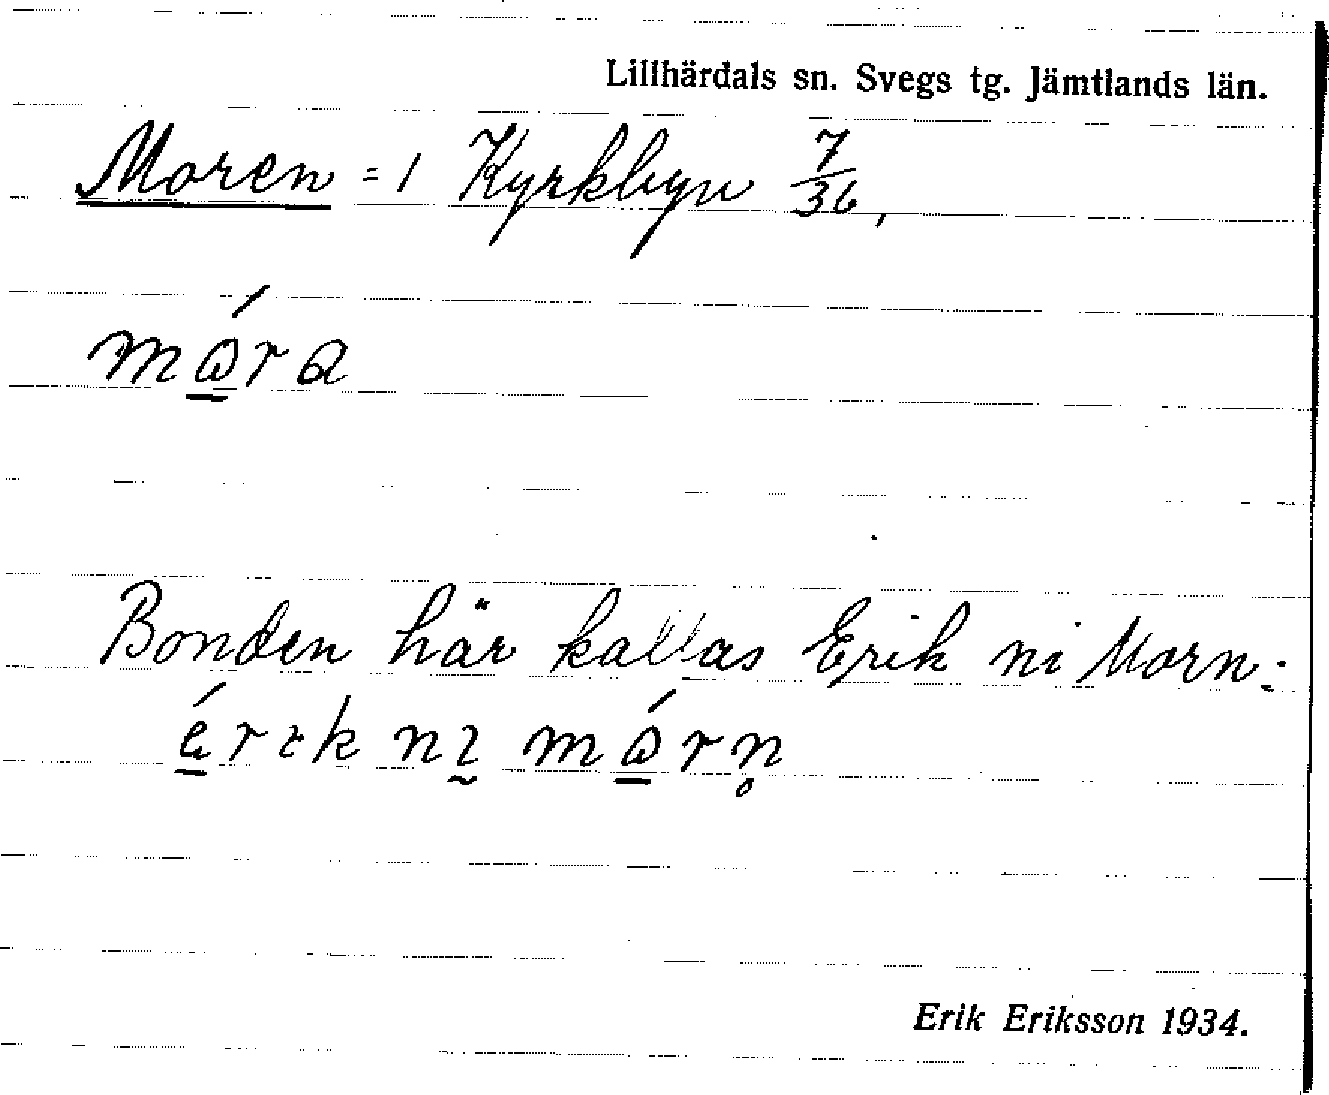 Lillhärdals sn. Svegs tg. Jämtlands län.
Moren = 1 Kyrkbyn 7/36,
mώ̲ra
Bonden här kallas Erik ni Morn:
é̲rɩk nɩ̰ mώ̲rn̥
Erik Eriksson 1934.